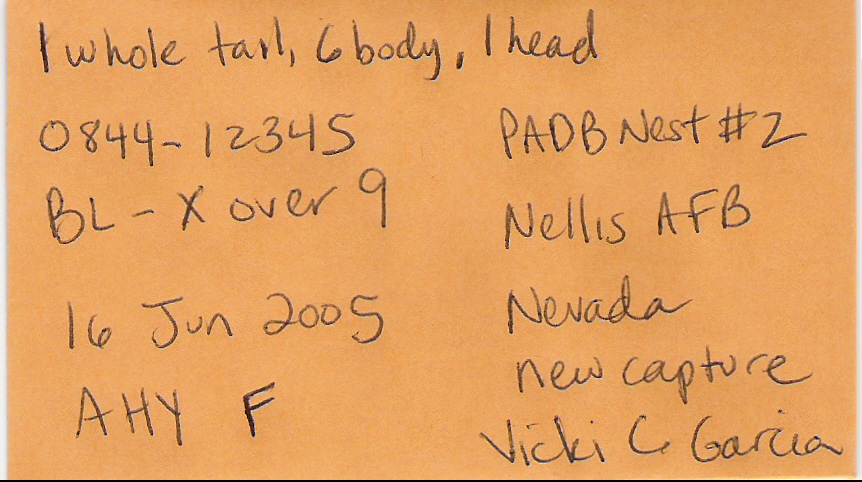 1 whole tail, 6 body, 1 head
0844-12345
BL - X over 9
16 Jun 2005
AHY F
PADB Nest #2
Nellis AFB
Nevada
new capture
Vicki C. Garcia